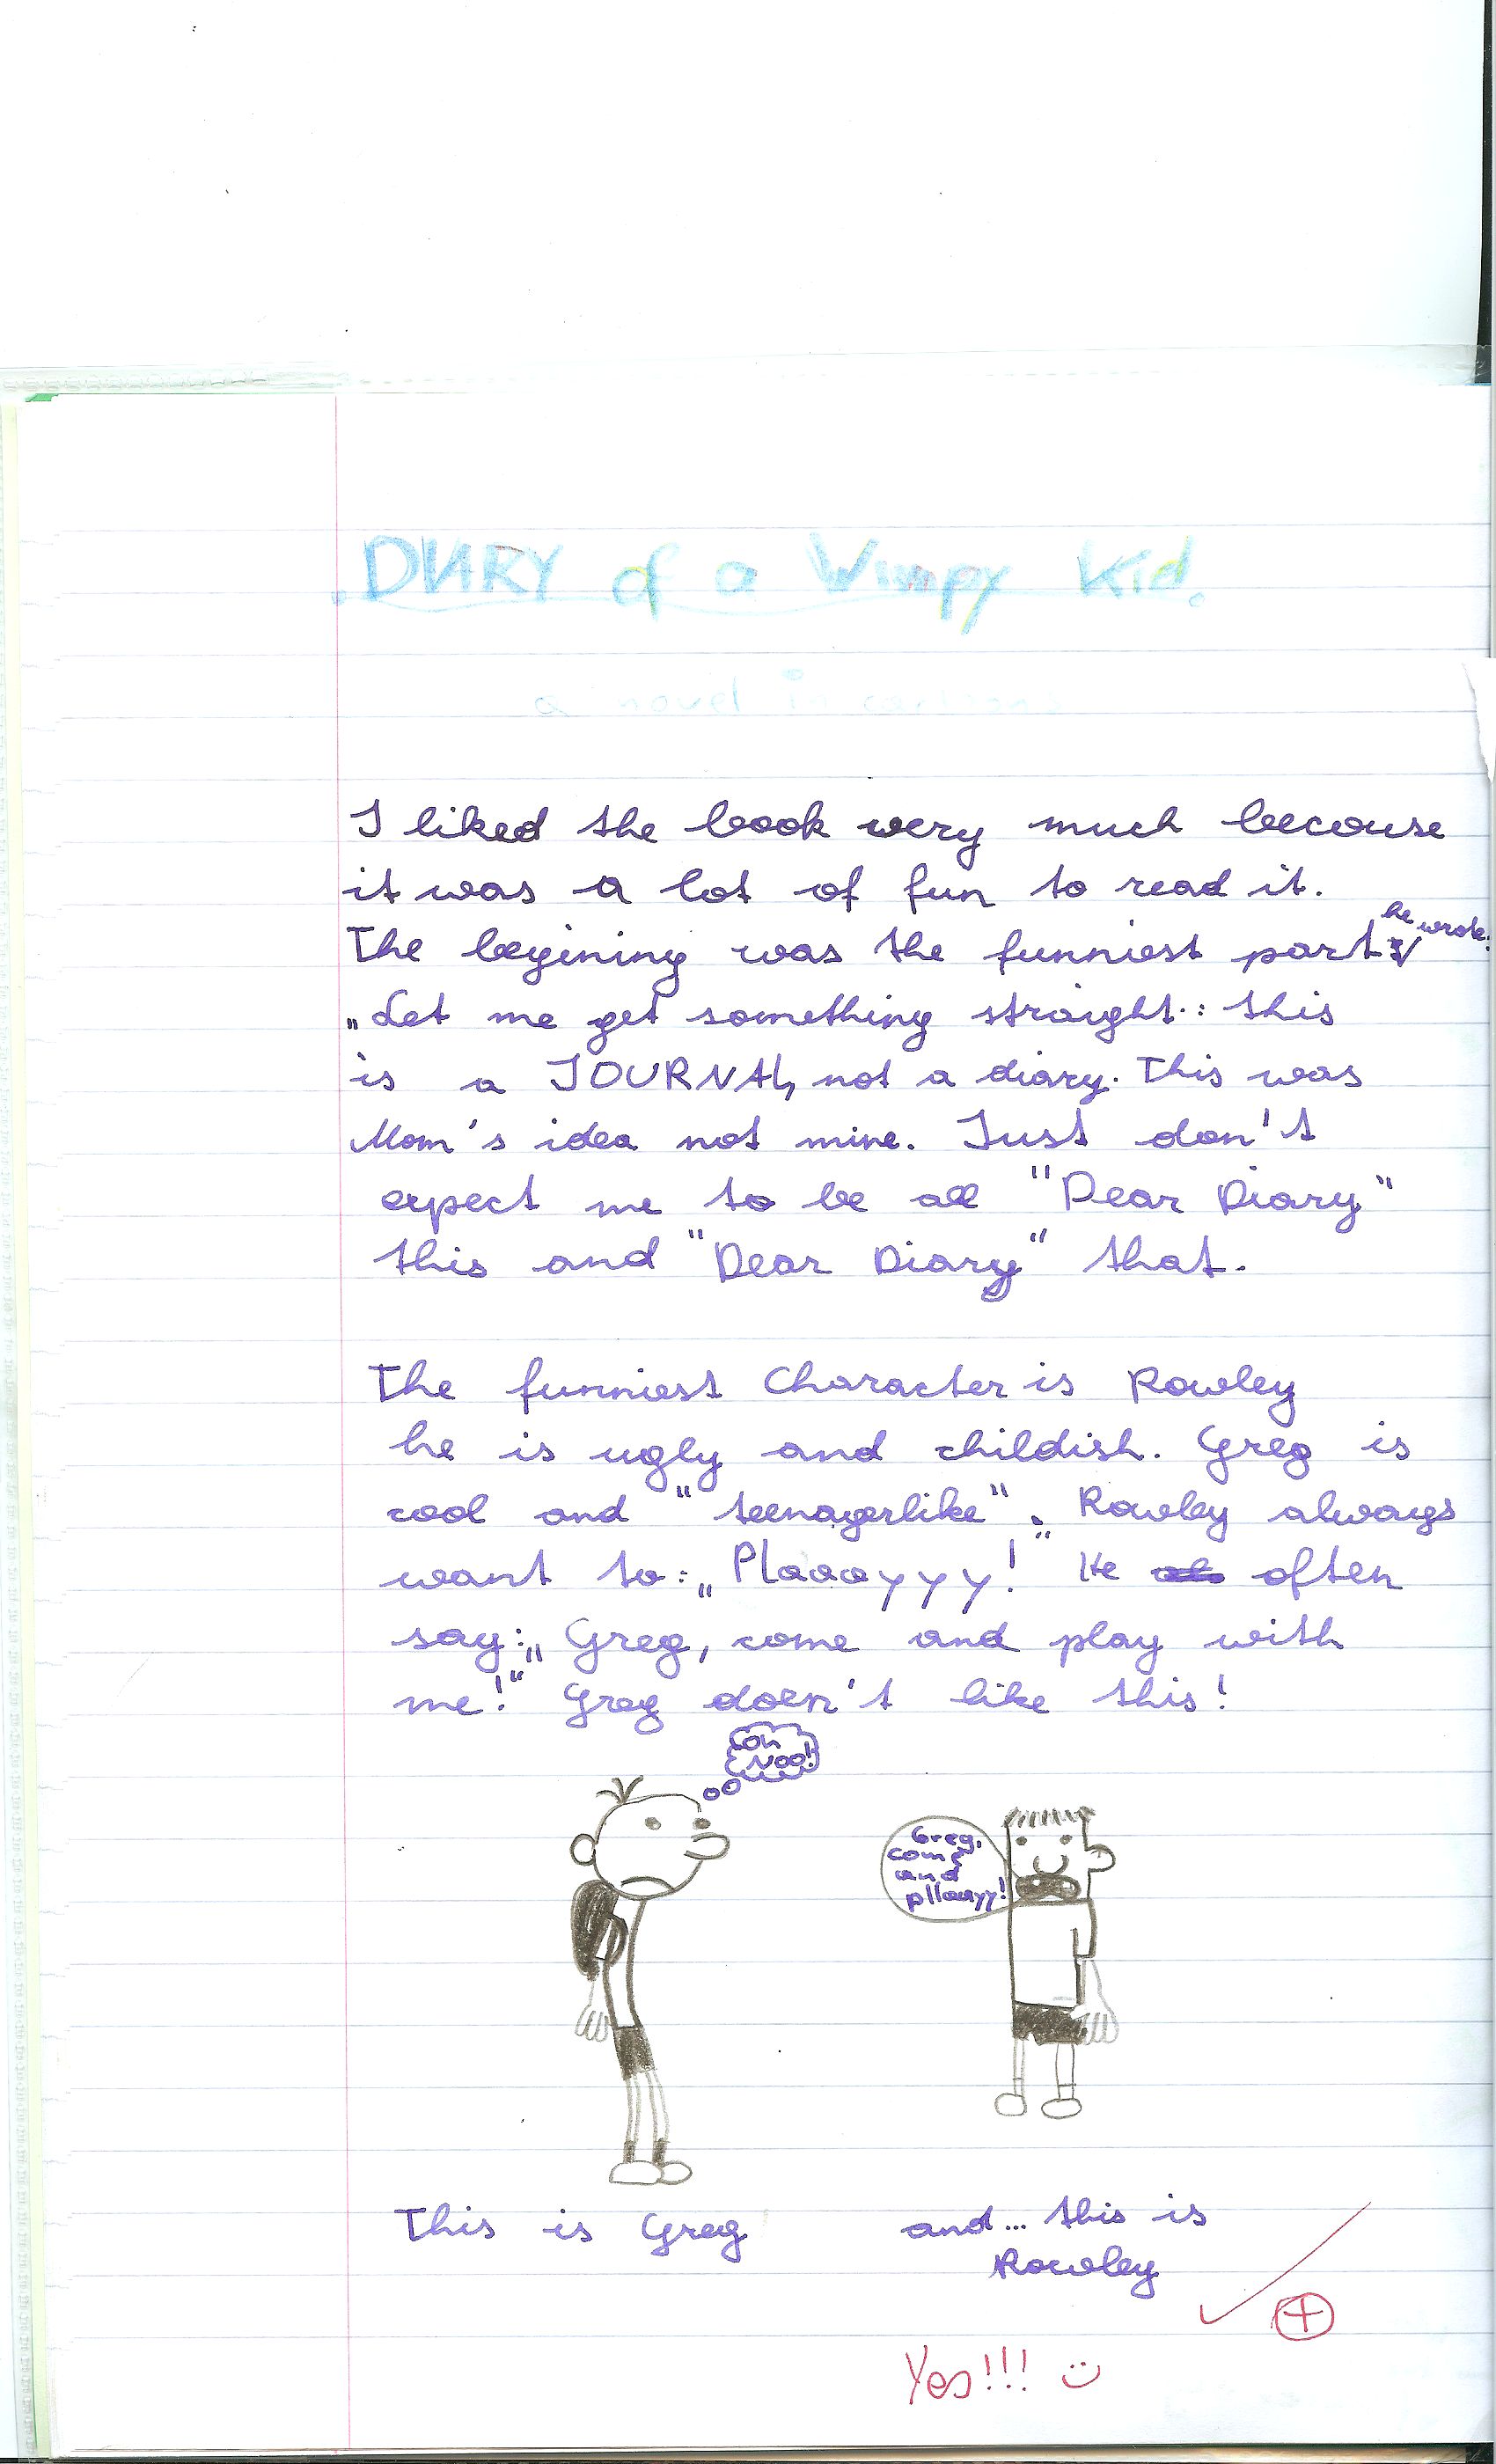 DIARY of a Wimpy Kid.
a novel in cartoons
I liked the book wery much becouse
it was a lot of fun to read it.
The begining was the funniest part he wrote:
„Let me get something straight: this
is a JOURNAL, not a diary. This was
Mom's idea not mine. Just don't
expect me to be all "Dear Diary"
this and "Dear Diary" that.
The funniest Character is Rowley
he is ugly and childish. Greg is
cool and "teenagerlike". Rowley always
want to: „Plaaayyy!" He often
say: „Greg, come and play with
me!" Greg doesn't like this!
Ooh
Noo!
Greg,
come
and
pllaayy!
This is Greg
and... this is
Rowley
Yes!!!